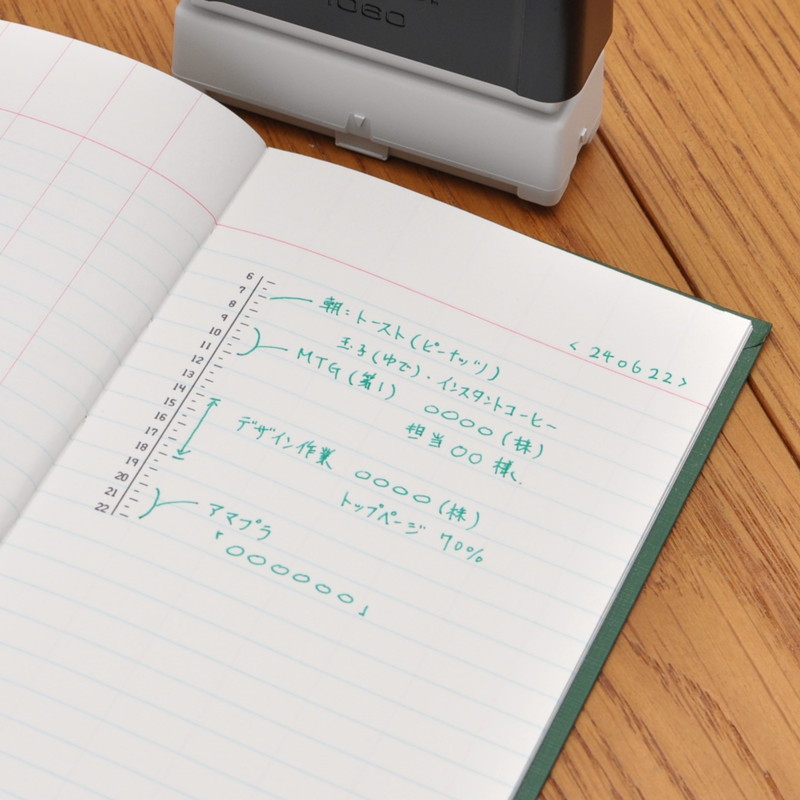 1060
<240622>
6
7
8
9
10
11
12
13
14
15
16
17
18
19
20
21
22
朝:トースト(ピーナッツ)
玉子(ゆで)・インスタントコーヒー
MTG(第1) ○○○○(株)
担当○○様.
デザイン作業 ○○○○(株)
トップページ 70%
アマプラ
「○○○○○○」